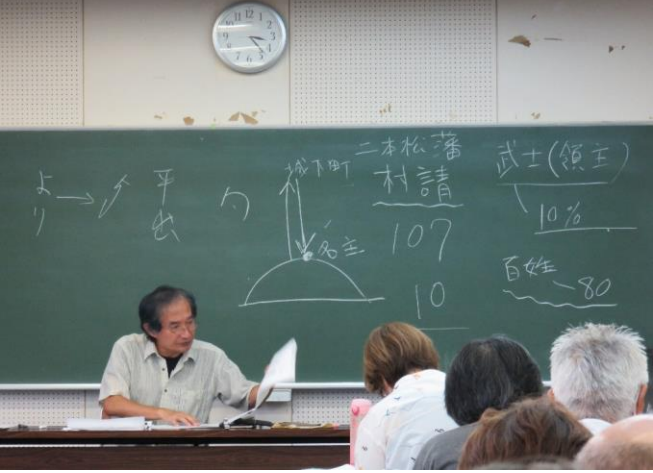 より→ゟ
平出
城下町
名主
二本松藩
村請
107
10
武士(領主)
10%
百姓
80